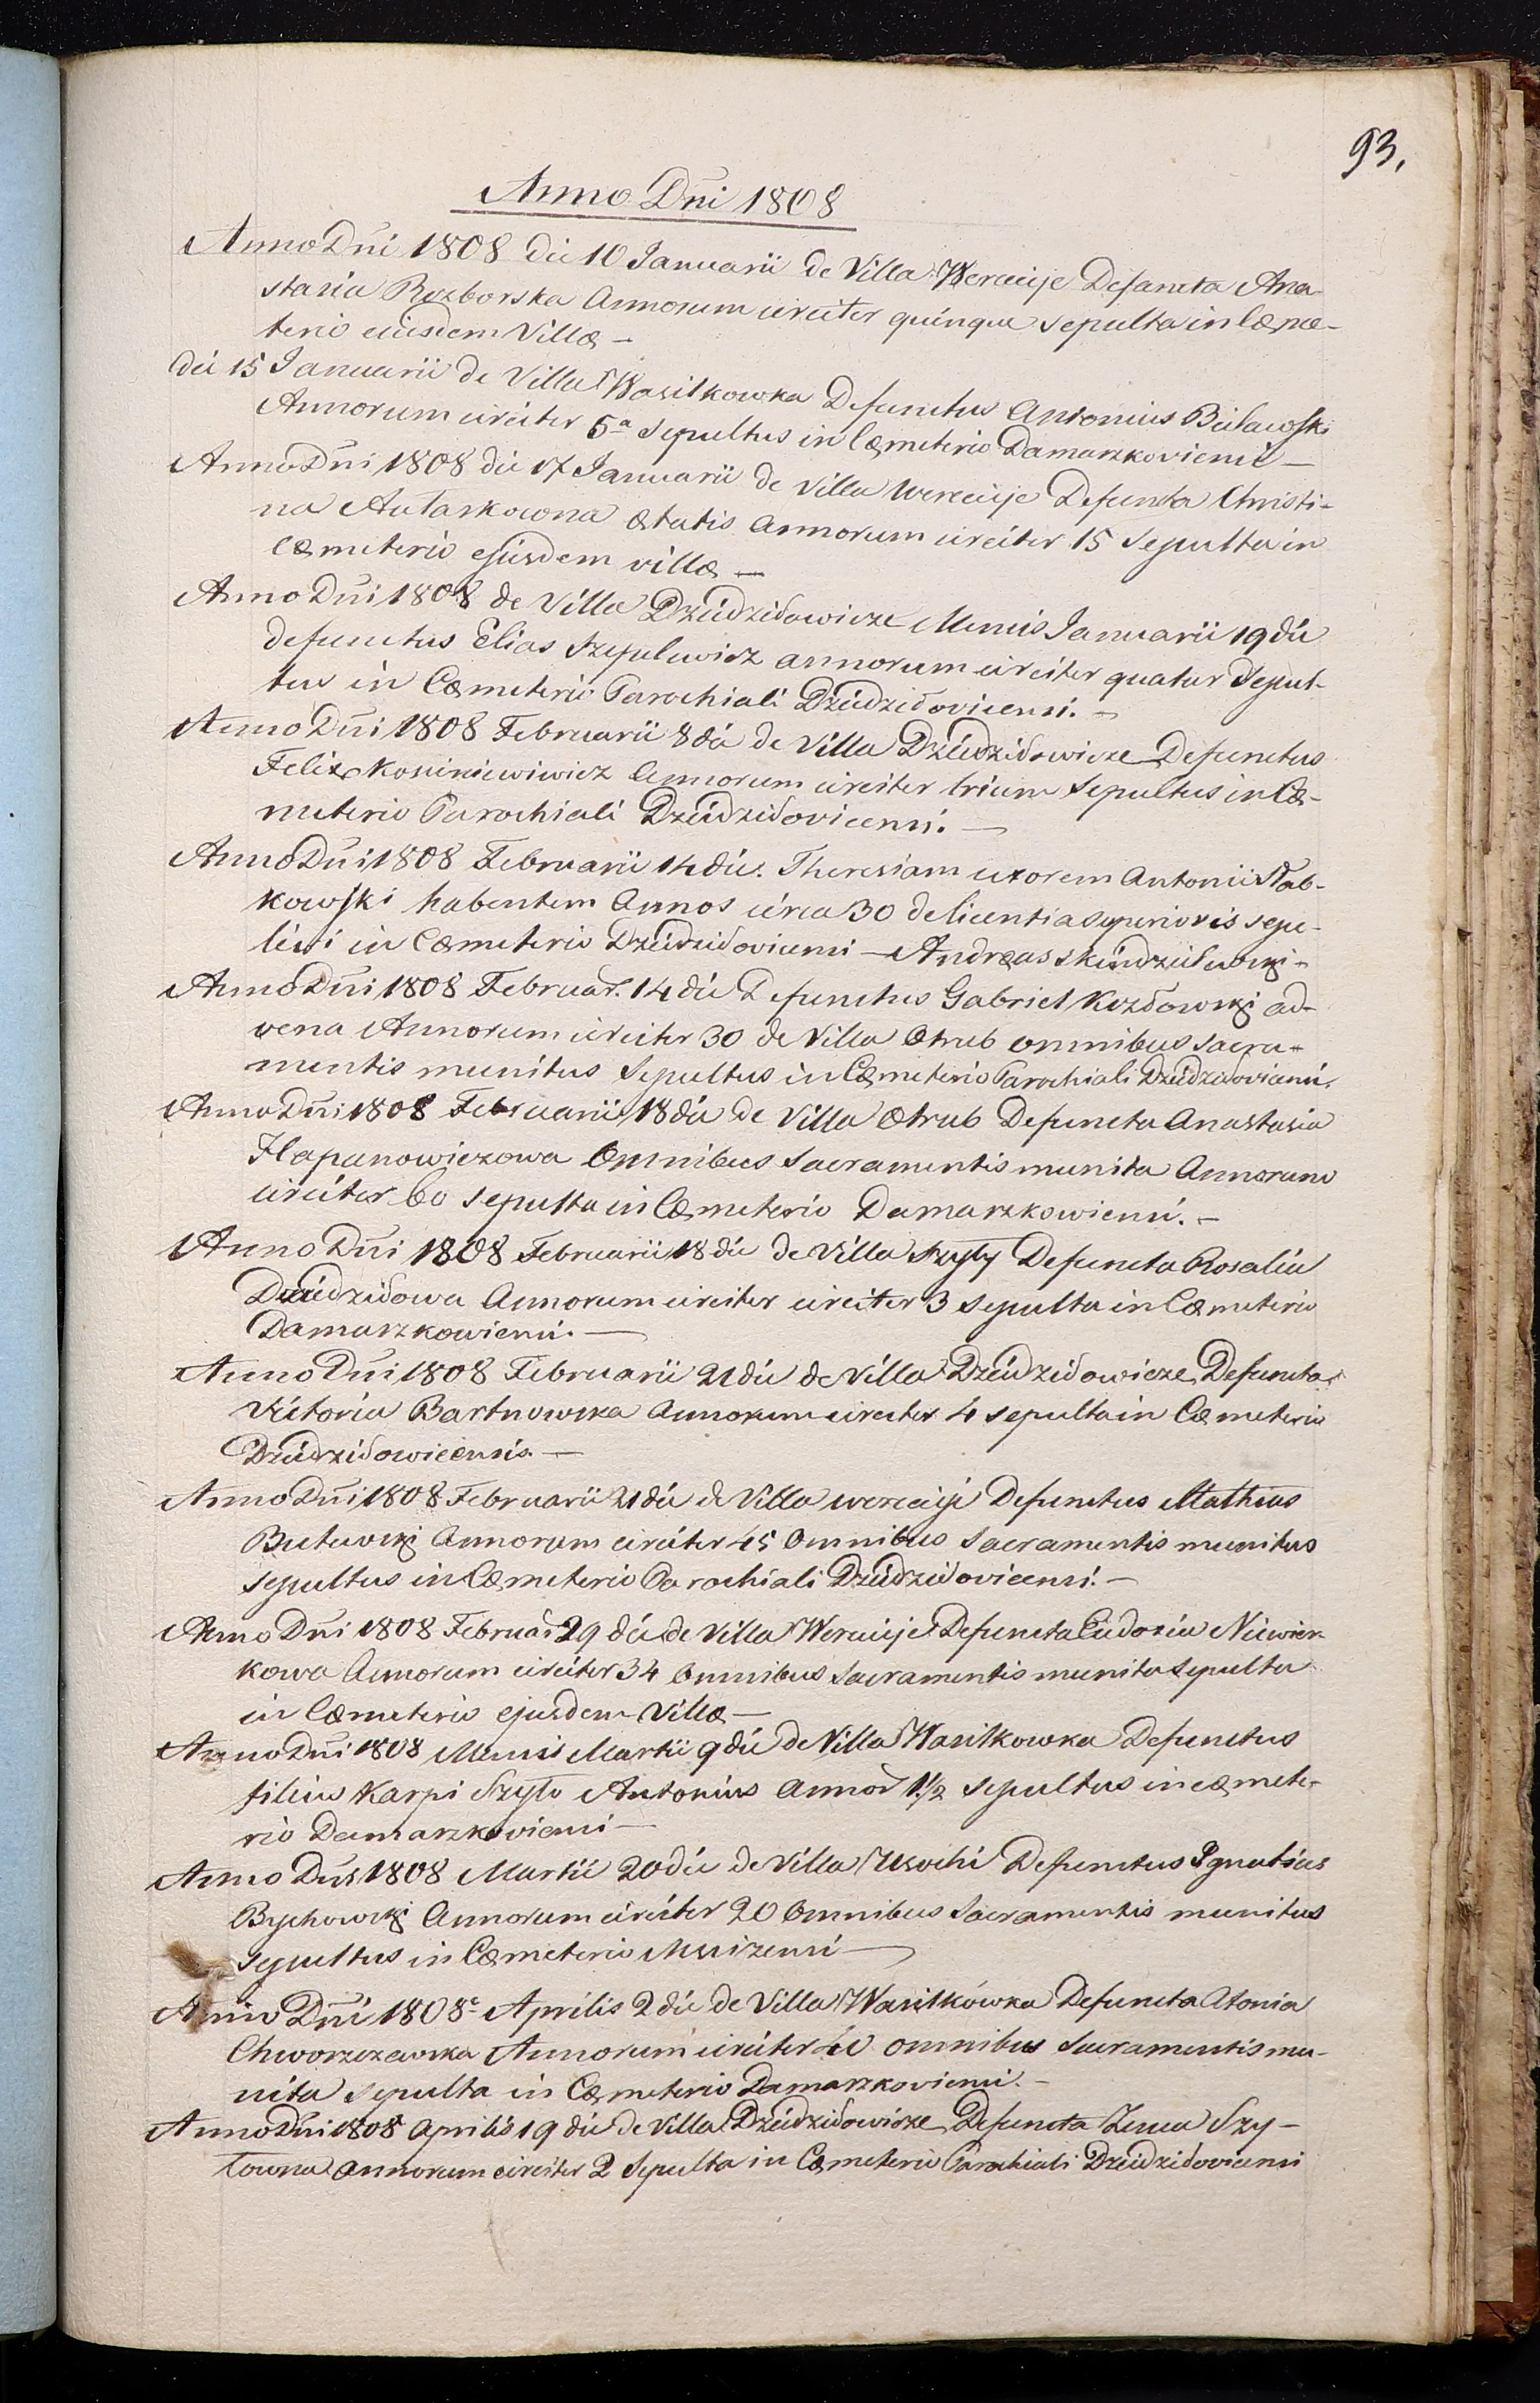 93.
Anno Dni 1808
Anno Dni 1808 die 10 Januarii de Villa Wereiije Defuncta Ana
stasia Rozborska Annorum circiter quinque sepulta in Cæme-
terio eiusdem Villæ —
die 15 Januarii de Villa Wasilkowka Defunctus Antonius Bielawski
Annorum circiter 5a Sepultus in Cæmeterio Damarzkoviensi —
Anno Dni 1808 die 17 Januarii de Villa Wereiije Defuncta Christi-
na Autaskowna ætatis Annorum circiter 15 Sepulta in
Cæmeterio ejusdem villæ —
Anno Dni 1808 de Villa Dziudzidowicze Mensis Januarii 19 die
defunctus Elias Szepulewicz annorum circiter quatur Sepul-
tus in Cæmeterio Parochiali Dziudzidoviciensi. —
Anno Dni 1808 Februarii 8 die de Villa Dziudzidowicze Defunctus
Felix Kosiniewiwicz Annorum circiter trium Sepultus in Cæ-
meterio Parochiali Dziudzidovicensi. —
Anno Dni 1808 Februarii 14 die. Theresiam uxorem Antonii Slab-
kowski habentem Annos circa 30 de licentia superioris sepe-
livi in Cæmeterio Dziudzidovicensi — Andreas Skindzielewski -
Anno Dni 1808 Februar. 14 die Defunctus Gabriel Kozłowski ad-
vena Annorum circiter 30 de Villa Otrub omnibus sacra-
mentis munitus Sepultus in Cæmeterio Parochiali Dziudzidoviciensi.
Anno Dni 1808 Februarii 18 die de Villa Otrub Defuncta Anastasia
Hapanowiczowa Omnibus Sacramentis munita Annorum
circiter 60 sepulta in Cæmeterio Damarzkowiensi. —
Anno Dni 1808 Februarii 18 die de Villa Szyły Defuncta Rosalia
Dziudzidowa Annorum circiter circiter 3 sepulta in Cæmeterio
Damarzkowiensi. —
Anno Dni 1808 Februarii 21 die de Villa Dziudzidowicze Defuncta
Victoria Bartnowska Annorum circiter 4 sepulta in Cæmeterio
Dziudzidowicensis. —
Anno Dni 1808 Februarii 21 die de Villa wereiije Defunctus Mathias
Butewski Annorum circiter 45 Omnibus Sacramentis munitus
sepultus in Cæmeterio Parochiali Dziudzidovicensi. —
Anno Dni 1808 Februar 29 die de Villa Wereiije Defuncta Eudoxia Niewier-
kowa Annorum circiter 34 Omnibus Sacramentis munita sepulta
in Cæmeterio ejusdem Villæ —
Anno Dni 1808 Mensis Martii 9 die de Villa Wasilkowka Defunctus
filius Karpi Szyło Antonius Annor 1 1/2 Sepultus in cæmete-
rio Damarzkoviensi —
Anno Dni 1808 Martii 20 die de Villa Usochi Defunctus Ignatius
Bychowski Annorum circiter 20 Omnibus Sacramentis munitus
sepultus in Cæmeterio Mscizensi —
Anno Dni 1808 Aprilis 2 die de Villa Wasilkówka Defuncta Atonia
Chworzczewska Annorum circiter 40 omnibus Sacramentis mu-
nita sepulta in Cæmeterio Damarzkoviensi. —
Anno Dni 1808 Aprilis 19 die de Villa Dziudzidowicze Defuncta Zenia Szy-
łowna Annorum circiter 2 Sepulta in Cæmeterio Parochiali Dziudzidoviciensi